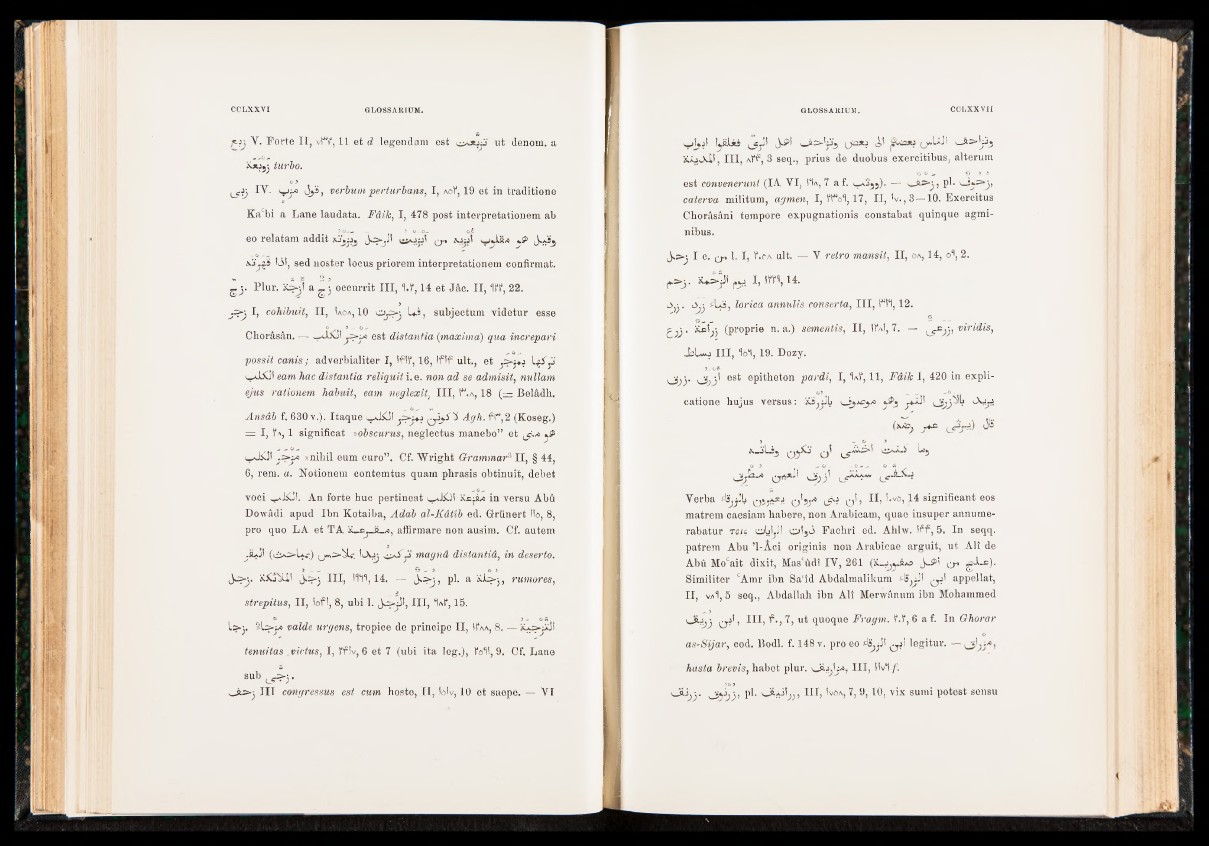 CCLXXVI GLOSSARIUM.
زبع V. Forte II, 11 et d legendum est تزبّعت ut denom. a
زوبعة turbo.
زبى IV. مزب قول, verbum perturbans, I, ٨٥٢, 19 et in traditione
Kaʿbi a Lane laudata. Fâik, I, 478 post interpretationem ab
eo relatam addit وقيل هو مقلوب
اذا قهرته, sed noster locus priorem interpretationem confirmat.
زجّ. Plur. أزجّة a زجّ occurrit III, ٩٠٢, 14 et Jâc. II, 22.
زجر I, cohibuit, II, ١٨٥٨, 10 لها زجرت, subjectum videtur esse
Chorâsân. — مزجر الكلب est distantia (maxima) qua increpari
possit canis; adverbialiter I, 16, ult., et تركها بمزجر
الكلب eam hac distantia reliquit i.e. non ad se admisit, nullam
ejus rationem habuit, eam neglexit, III, ٣٠٨, 18 (= Belâdh.
Ansâb f. 630 v.). Itaque بمزجر الكلب Agh. 2 (Koseg.)
= I, ٢٨, 1 significat »obscurus, neglectus manebo” et هو منى
مزجر الكلب »nihil eum curo”. Cf. Wright Grammar³ II, § 44,
6, rem. a. Notionem contemtus quam phrasis obtinuit, debet
voci الكلب. An forte huc pertineat الكلب in versu Abû
Dowâdi apud Ibn Kotaiba, Adab al-Kâtib ed. Grünert ١١٥, 8,
pro quo LA et TA, affirmare non ausim. Cf. autem
تركت زيدا magnâ distantiâ, in deserto.
زجل. زجل الملائكة III, 14. — زجل, pl. a زجلة, rumores,
strepitus, II, ١٥٤١, 8, ubi l. الزجل, III, ٩٨٢, 15.
زجا. مزجاء valde urgens, tropice de principe II, ١٢٨٨, 8. — التزجية
tenuitas victus, I, ٢٤١٧, 6 et 7 (ubi ita leg.), ٢٥٩١, 9. Cf. Lane
sub زجّى.
زحف III congressus est cum hoste, II, ١٥١٧, 10 et saepe. — VI
GLOSSARIUM. CCLXXVII
وتزاحف الناس بعضهم الى بعض وتزاحف اهل الرىّ فغلقوا ابواب
المدينة, III, 3 seq., prius de duobus exercitibus, alterum
est convenerunt (IA VI, ١٩٨, 7 a f.). — زحف, pl. زحوف,
caterva militum, agmen, I, ٢٣٥٩, 17, II, 3—10. Exercitus
Chorâsâni tempore expugnationis constabat quinque agmi-
nibus.
زحل I c. من l. I, ٢٠٥٨ ult. — V retro mansit, II, ٥٨, 14, ٥٩, 2.
زحم. يوم الزحمة I, 14.
زرد. زرد قباء, lorica annulis conserta, III, 12.
زرع. زراعة (proprie n. a.) sementis, II, 7. — زرعى, viridis,
بساط III, ٦٥٦, 19. Dozy.
زرق. ازرق est epitheton pardi, I, ٩٨٢, 11, Fâik I, 420 in expli-
catione hujus versus: يريد بالازرق النمر وهو موصوف بالزرقة
قال
وما كنت اخشى ان تكون وفاته
بكفّى سبنتى ازرق العين مطرق
Verba ان بنى مروان يعيرون بالزرقاء, II, ١٠٧٥, 14 significant eos
matrem caesiam habere, non Arabicam, quae insuper annume-
rabatur τοῖς ذوات الرايات Fachrî ed. Ahlw. ١٤٤, 5. In seqq.
patrem Abu ’l-Âçi originis non Arabicae arguit, ut Alî de
Abû Moʿait dixit, Masʿûdî IV, 261 (علج من اهل صفورية).
Similiter ʿAmr ibn Saʿîd Abdalmalikum ابن الزرقاء appellat,
II, ٧٨٩, 5 seq., Abdallah ibn Alî Merwânum ibn Mohammed
ابن زريق, III, ٤٠, 7, ut quoque Fragm. ٢٠٢, 6 a f. In Ghorar
as-Sijar, cod. Bodl. f. 148 v. pro eo ابن الزرقاء legitur. — مزراق,
hasta brevis, habet plur. مزاريق, III, f.
زرنق. زرنوق, pl. زرانيق, III, ١٧٥٨, 7, 9, 10, vix sumi potest sensu